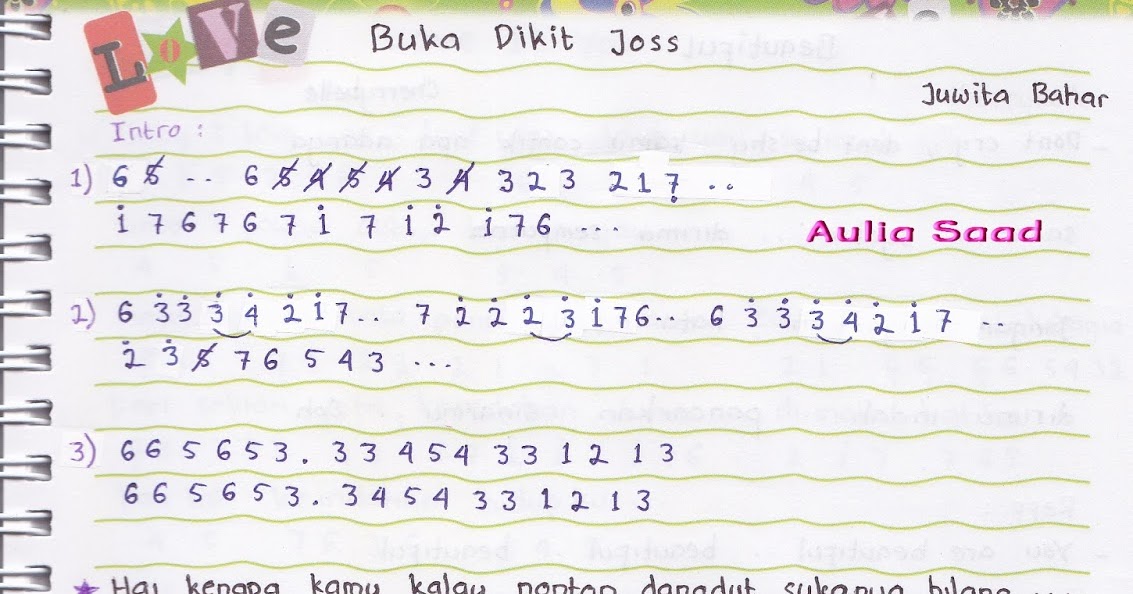 Love
Buka Dikit Joss
Juwita Bahar
Intro :
1) 6 5̸ .. 6 5̸ 4̸ 5̸ 4̸ 3 4̸ 3 2 3 2 1 7̣ ..
i 7 6 7 6 7 i 7 i 2̇ i 7 6 ...
Aulia Saad
2) 6 3̇ 3̇ 3̇ 4̇ 2̇ i 7 . . 7 2̇ 2̇ 2̇ 3̇ i 7 6 .. 6 3̇ 3̇ 3̇ 4̇ 2̇ i 7 ..
2̇ 3̇ 5̸ 7 6 5 4 3 ...
3) 6 6 5 6 5 3 . 3 3 4 5 4 3 3 1 2 1 3
6 6 5 6 5 3 . 3 4 5 4 3 3 1 2 1 3
★ Hai kenapa kamu kalau nonton dangdut sukanya bilang ...